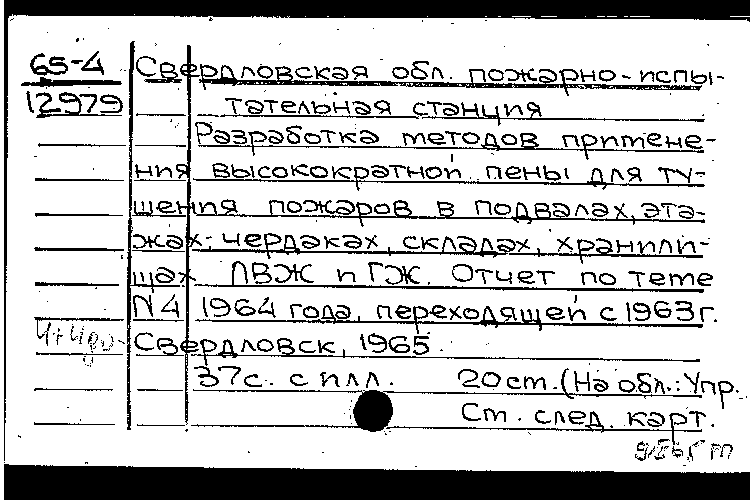 65-4
12979
Свердловская обл. пожарно-испы-
тательная станция
Разработка методов примене-
ния высокократной пены для ту-
шения пожаров в подвалах, эта-
жах, чердаках, складах, хранили-
щах ЛВЖ и ГЖ. Отчет по теме
N4 1964 года, переходящей с 1963г.
Свердловск, 1965.
37с. с илл. 20см. (На обл.: Упр.
См. след. карт.